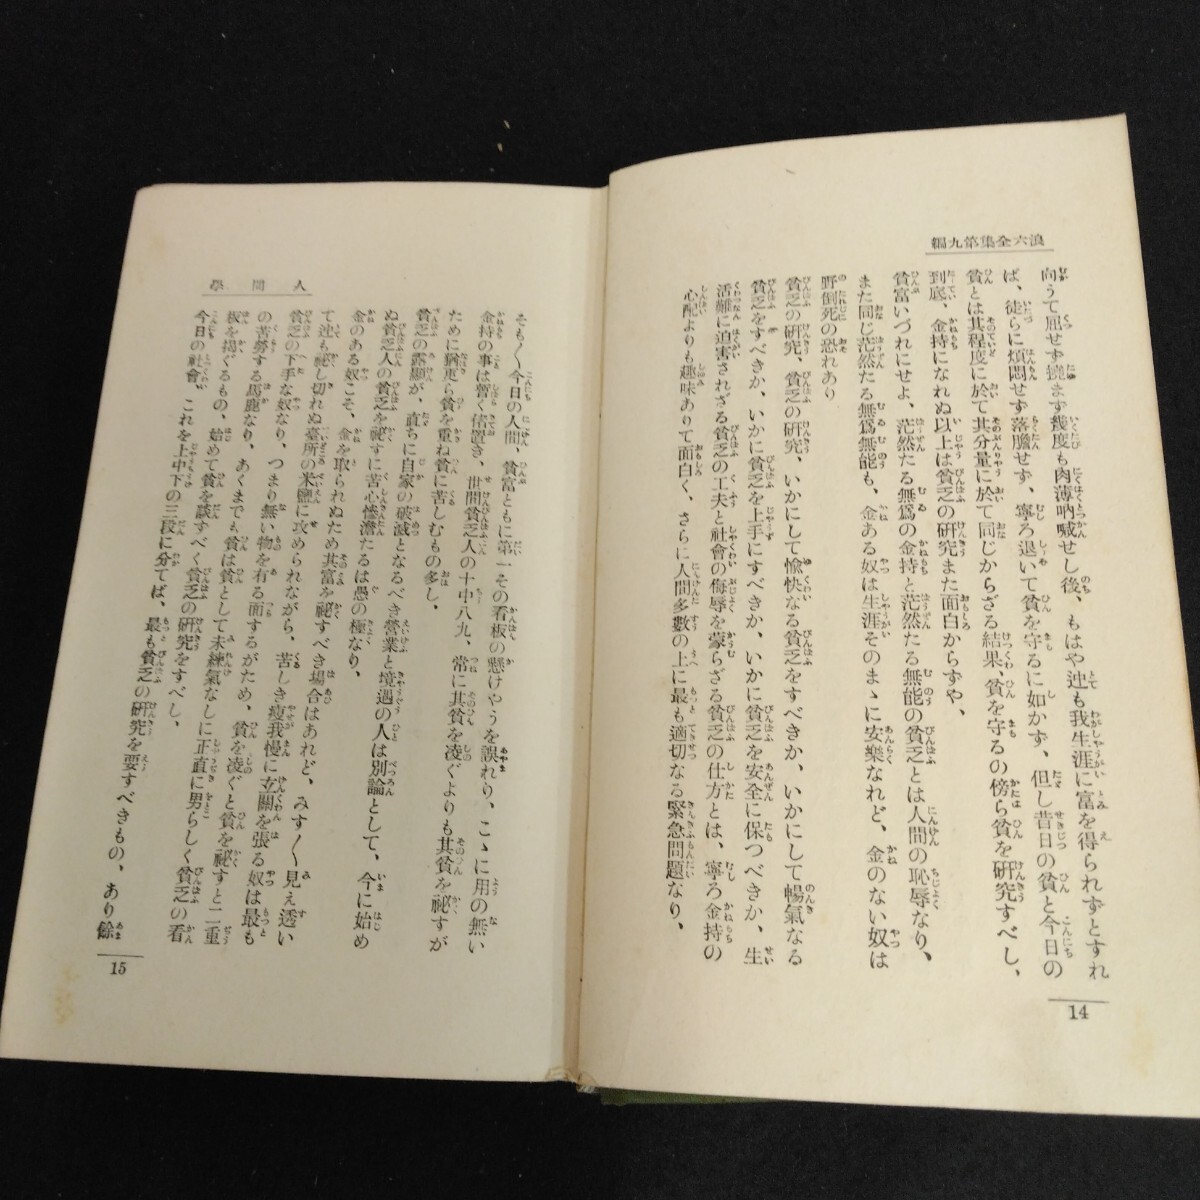 浪六全集第九編
向うて屈せず撓まず幾度も肉薄吶喊せし後、もはや迚も我生涯に富を得られずとすれ
ば、徒らに煩悶せず落膽せず、寧ろ退いて貧を守るに如かず、但し昔日の貧と今日の
貧とは其程度に於て其分量に於て同じからざる結果、貧を守るの傍ら貧を研究すべし、
到底、金持になれぬ以上は貧乏の研究また面白からずや、
貧富いづれにせよ、茫然たる無爲の金持と茫然たる無能の貧乏とは人間の恥辱なり、
また同じ茫然たる無爲無能も、金ある奴は生涯そのまゝに安樂なれど、金のない奴は
野倒死の恐れあり
貧乏の研究、貧乏の研究、いかにして愉快なる貧乏をすべきか、いかにして暢氣なる
貧乏をすべきか、いかに貧乏を上手にすべきか、いかに貧乏を安全に保つべきか、生
活難に迫害されざる貧乏の工夫と社會の侮辱を蒙らざる貧乏の仕方とは、寧ろ金持の
心配よりも趣味ありて面白く、さらに人間多數の上に最も適切なる緊急問題なり、
14
人間學
そも〳〵今日の人間、貧富ともに第一その看板の懸けやうを誤れり、こゝに用の無い
金持の事は暫く措置き、世間貧乏人の十中八九、常に其貧を凌ぐよりも其貧を祕すが
ために猶更ら貧を重ね貧に苦しむもの多し、
貧乏の露顯が、直ちに自家の破滅となるべき營業と境遇の人は別論として、今に始め
ぬ貧乏人の貧乏を祕すに苦心慘澹たるは愚の極なり、
金のある奴こそ、金を取られぬため其富を祕すべき場合はあれど、みす〳〵見え透い
て迚も祕し切れぬ臺所の米鹽に攻められながら、苦しき瘦我慢に玄關を張る奴は最も
貧乏の下手な奴なり、つまり無い物を有る面するがため、貧を凌ぐと貧を祕すと二重
の苦勞する馬鹿なり、あくまでも貧は貧として未練氣なしに正直に男らしく貧乏の看
板を揭ぐるもの、始めて貧を談ずべく貧乏の研究をすべし、
今日の社會、これを上中下の三段に分てば、最も貧乏の研究を要すべきもの、あり餘
15